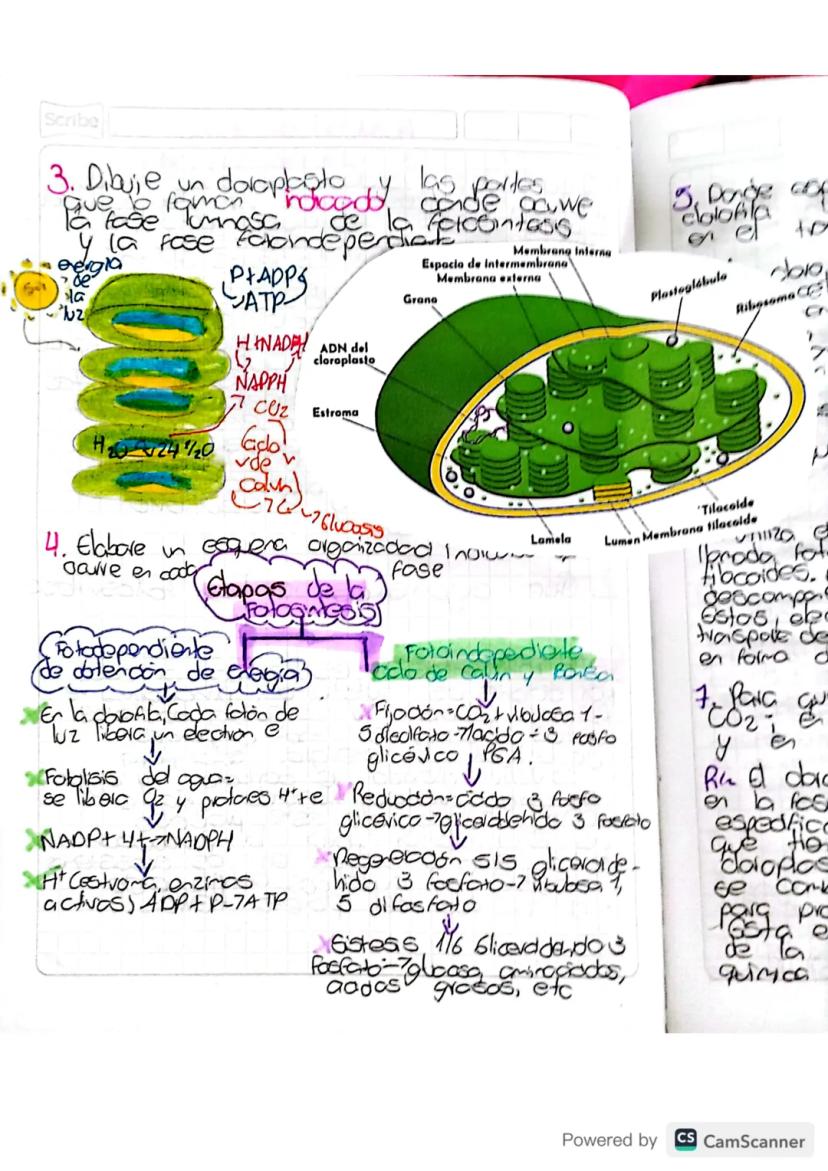 Scribe
3. Dibuje un cloroplasto y las partes
que lo forman indicado donde ocurre
la fase luminosa de la fotosintesis
y la fase fotoindependiente
energia
de
la
luz
Sol
P+ADP
ATP
H+NADPH
NADPH
CO2
Ciclo
de
Calvin
Glucosis
H2O
Membrana interna
Espacio de intermembrana
Membrana externa
Grana
Plastoglóbulo
Ribosoma
ADN del
cloroplasto
Estroma
Tilacoide
Lamela
Lumen
Membrana tilacoide
4. Elabore un esquema organizado
ocurre en cada fase
Etapas de la
Fotosintesis
Fotodependiente
de obtención de energia
Fotoindependiente
Ciclo de Calvin y
En la clorofila, Cada fotón de
luz libera un electron e
Fotolisis del agua=
se libera O2 y protones H+ + e
NADP+ 4+→NADPH
H+ (estroma, enzimas
activas) ADP+P→ATP
Fijación=CO2+ribulosa 1-
5 disolfato→1acido-3 fosfo
glicévico PGA.
Reducción=acido 3 fosfo
glicévico→gliceraldehido 3 fosfato
Regeneción 5/5 gliceralde-
hido 3 fosfato→ribulosa 1,
5 difosfato
Sistesis 1/6 Gliceraldehido 3
fosfato→glucosa, aminoacidos,
acidos grasos, etc
5. Donde
clorofila
en el
utiliza
llamada
tilacoides.
descompon
Estos,
transporte de
en forma
7. Para
CO2; en
y en
R= El
en la
especifica
que
cloroplas
se
para
de la
quimica
Powered by CS CamScanner